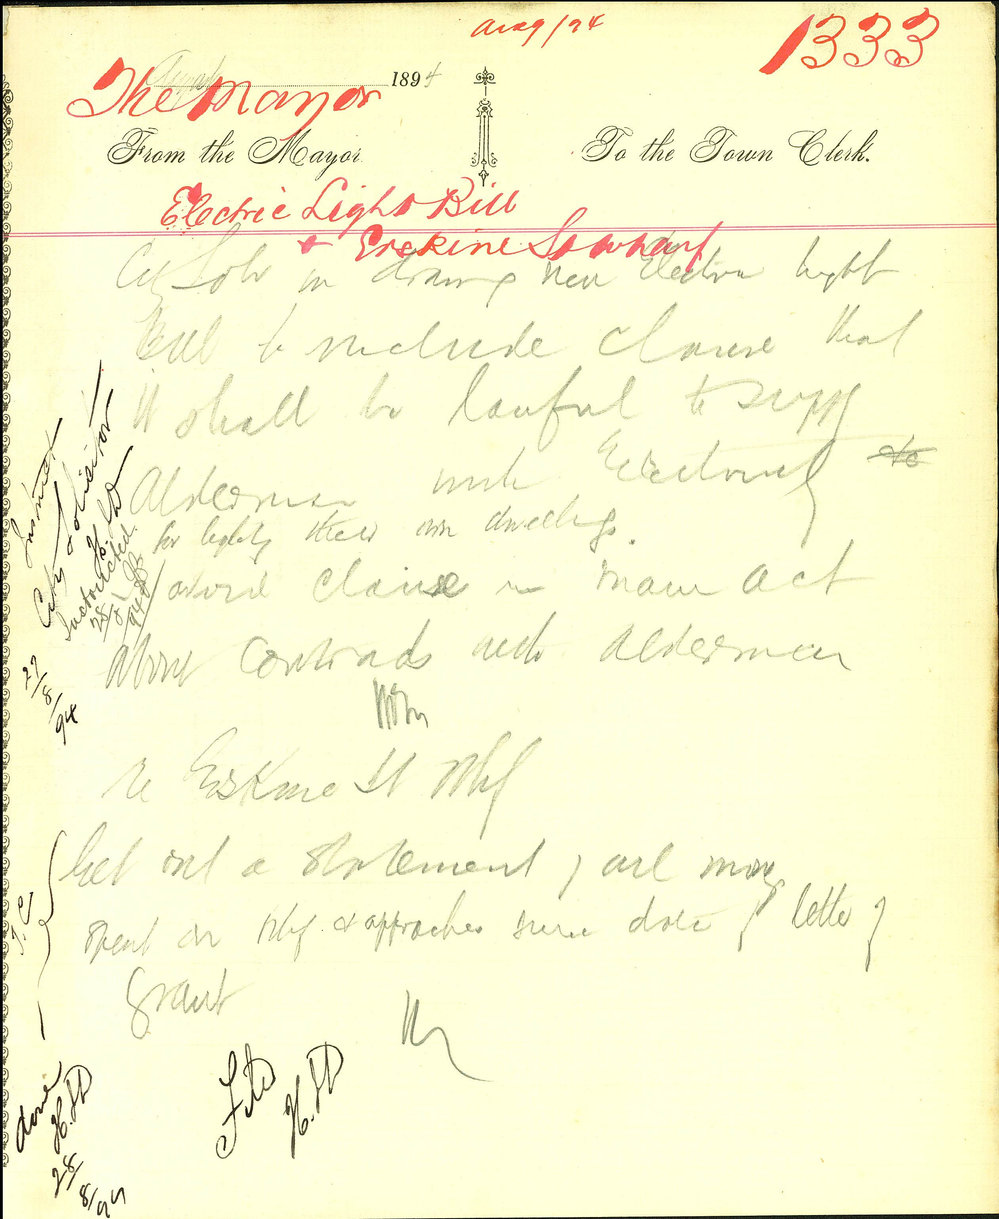 Aug/94
1333
1894
The Mayor
From the Mayor
To the Town Clerk.
Electric Light Bill
& Erskine St wharf
City Solr in drawing new Electric light
Bill to include clause that
it shall be lawful to supply
Alderman with Electricity etc
for lighting their own dwellings.
avoid clause in main act
about contracts with Alderman
re Erskine St Whf
Get out a statement of all money
spent on Whf. & approaches since date of letter of
Grant
Instruct
City Solicitor
H.D
Instructed.
28/8/94
27/8/94
T.C
done
H.D
28/8/94
File
H.D